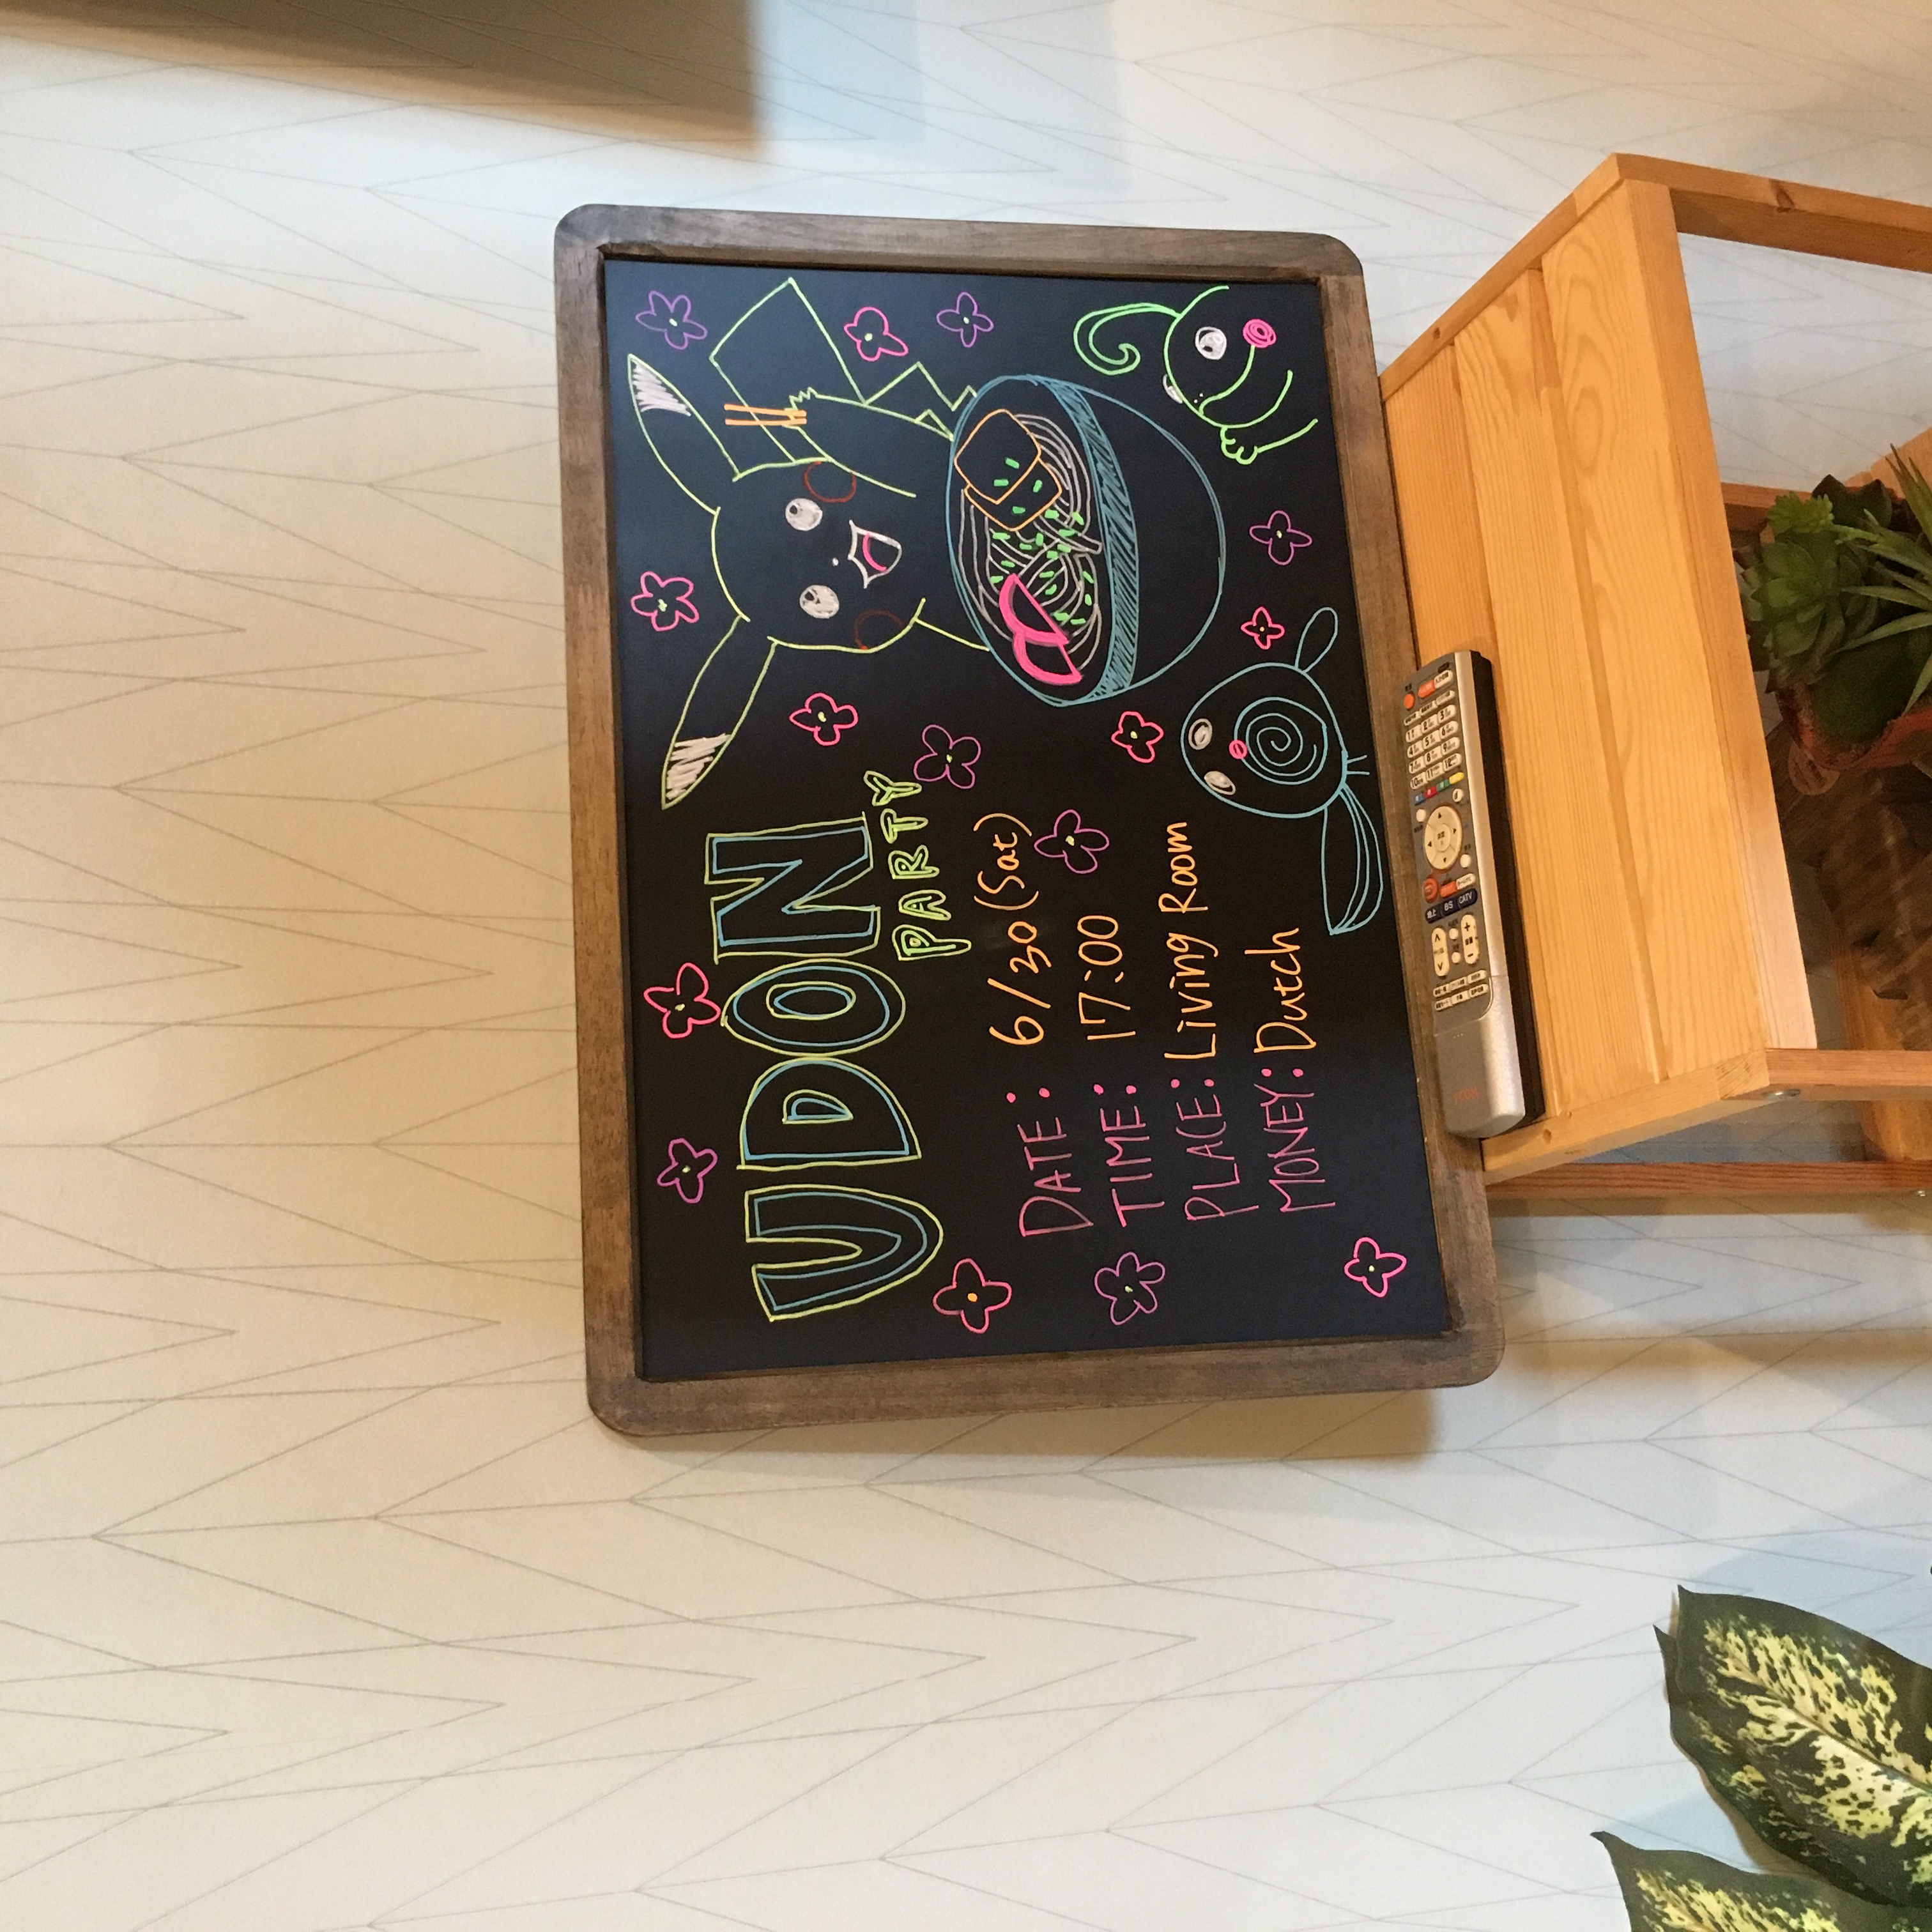 UDON
PARTY
DATE: 6/30 (Sat)
TIME: 17:00
PLACE: Living Room
MONEY: Dutch